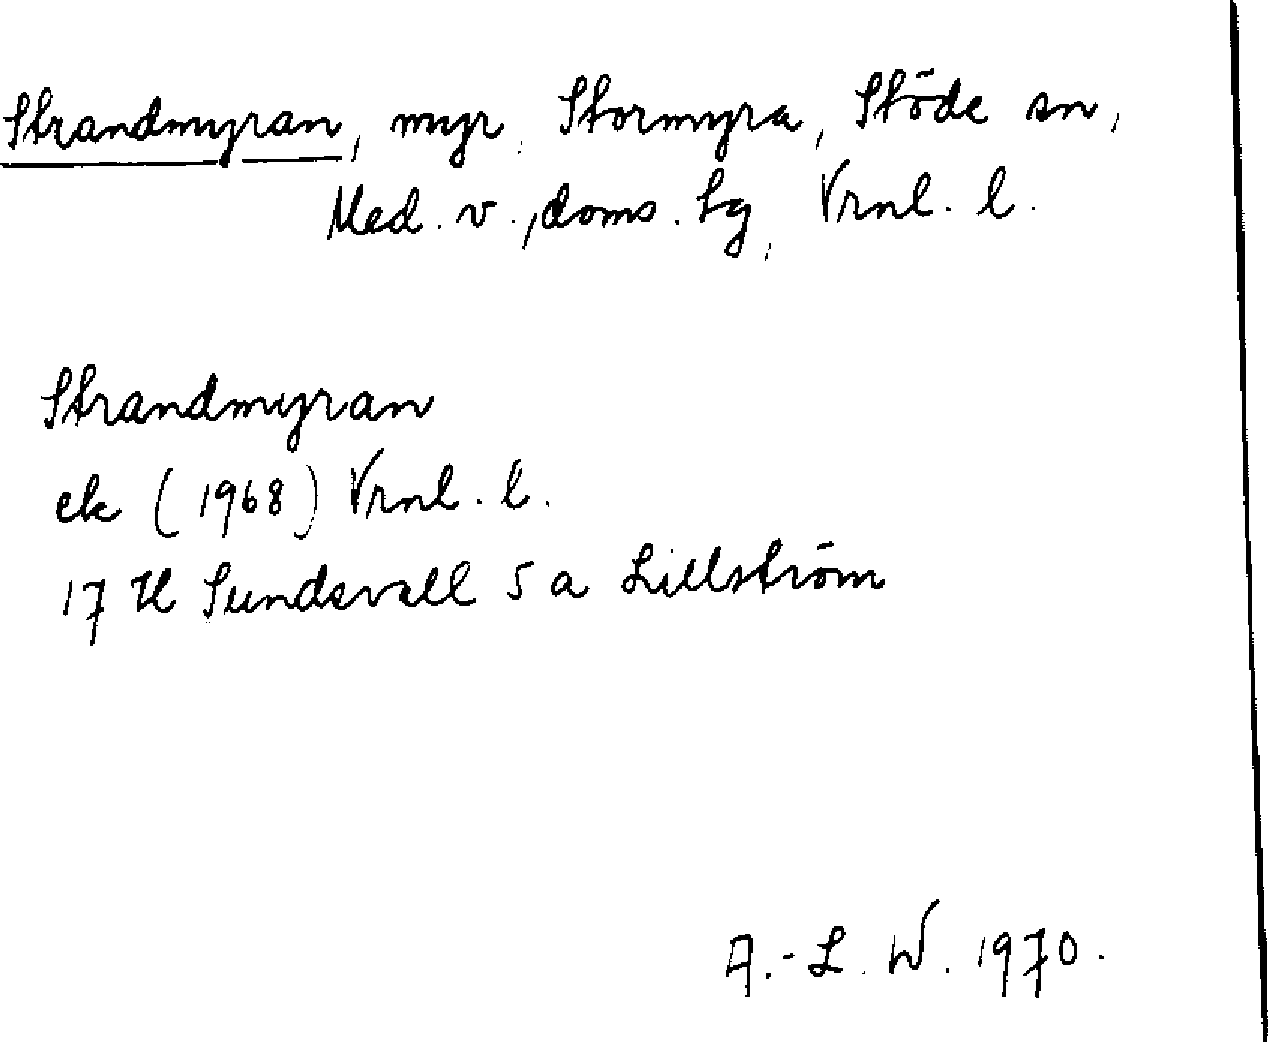 Strandmyran, myr, Stormyra, Stöde sn,
Med. v., doms. hg, Vrnl. l.
Strandmyran
ek (1968) Vrnl. l.
17 H Sundsvall 5 a Lillström
A.-L. W. 1970.